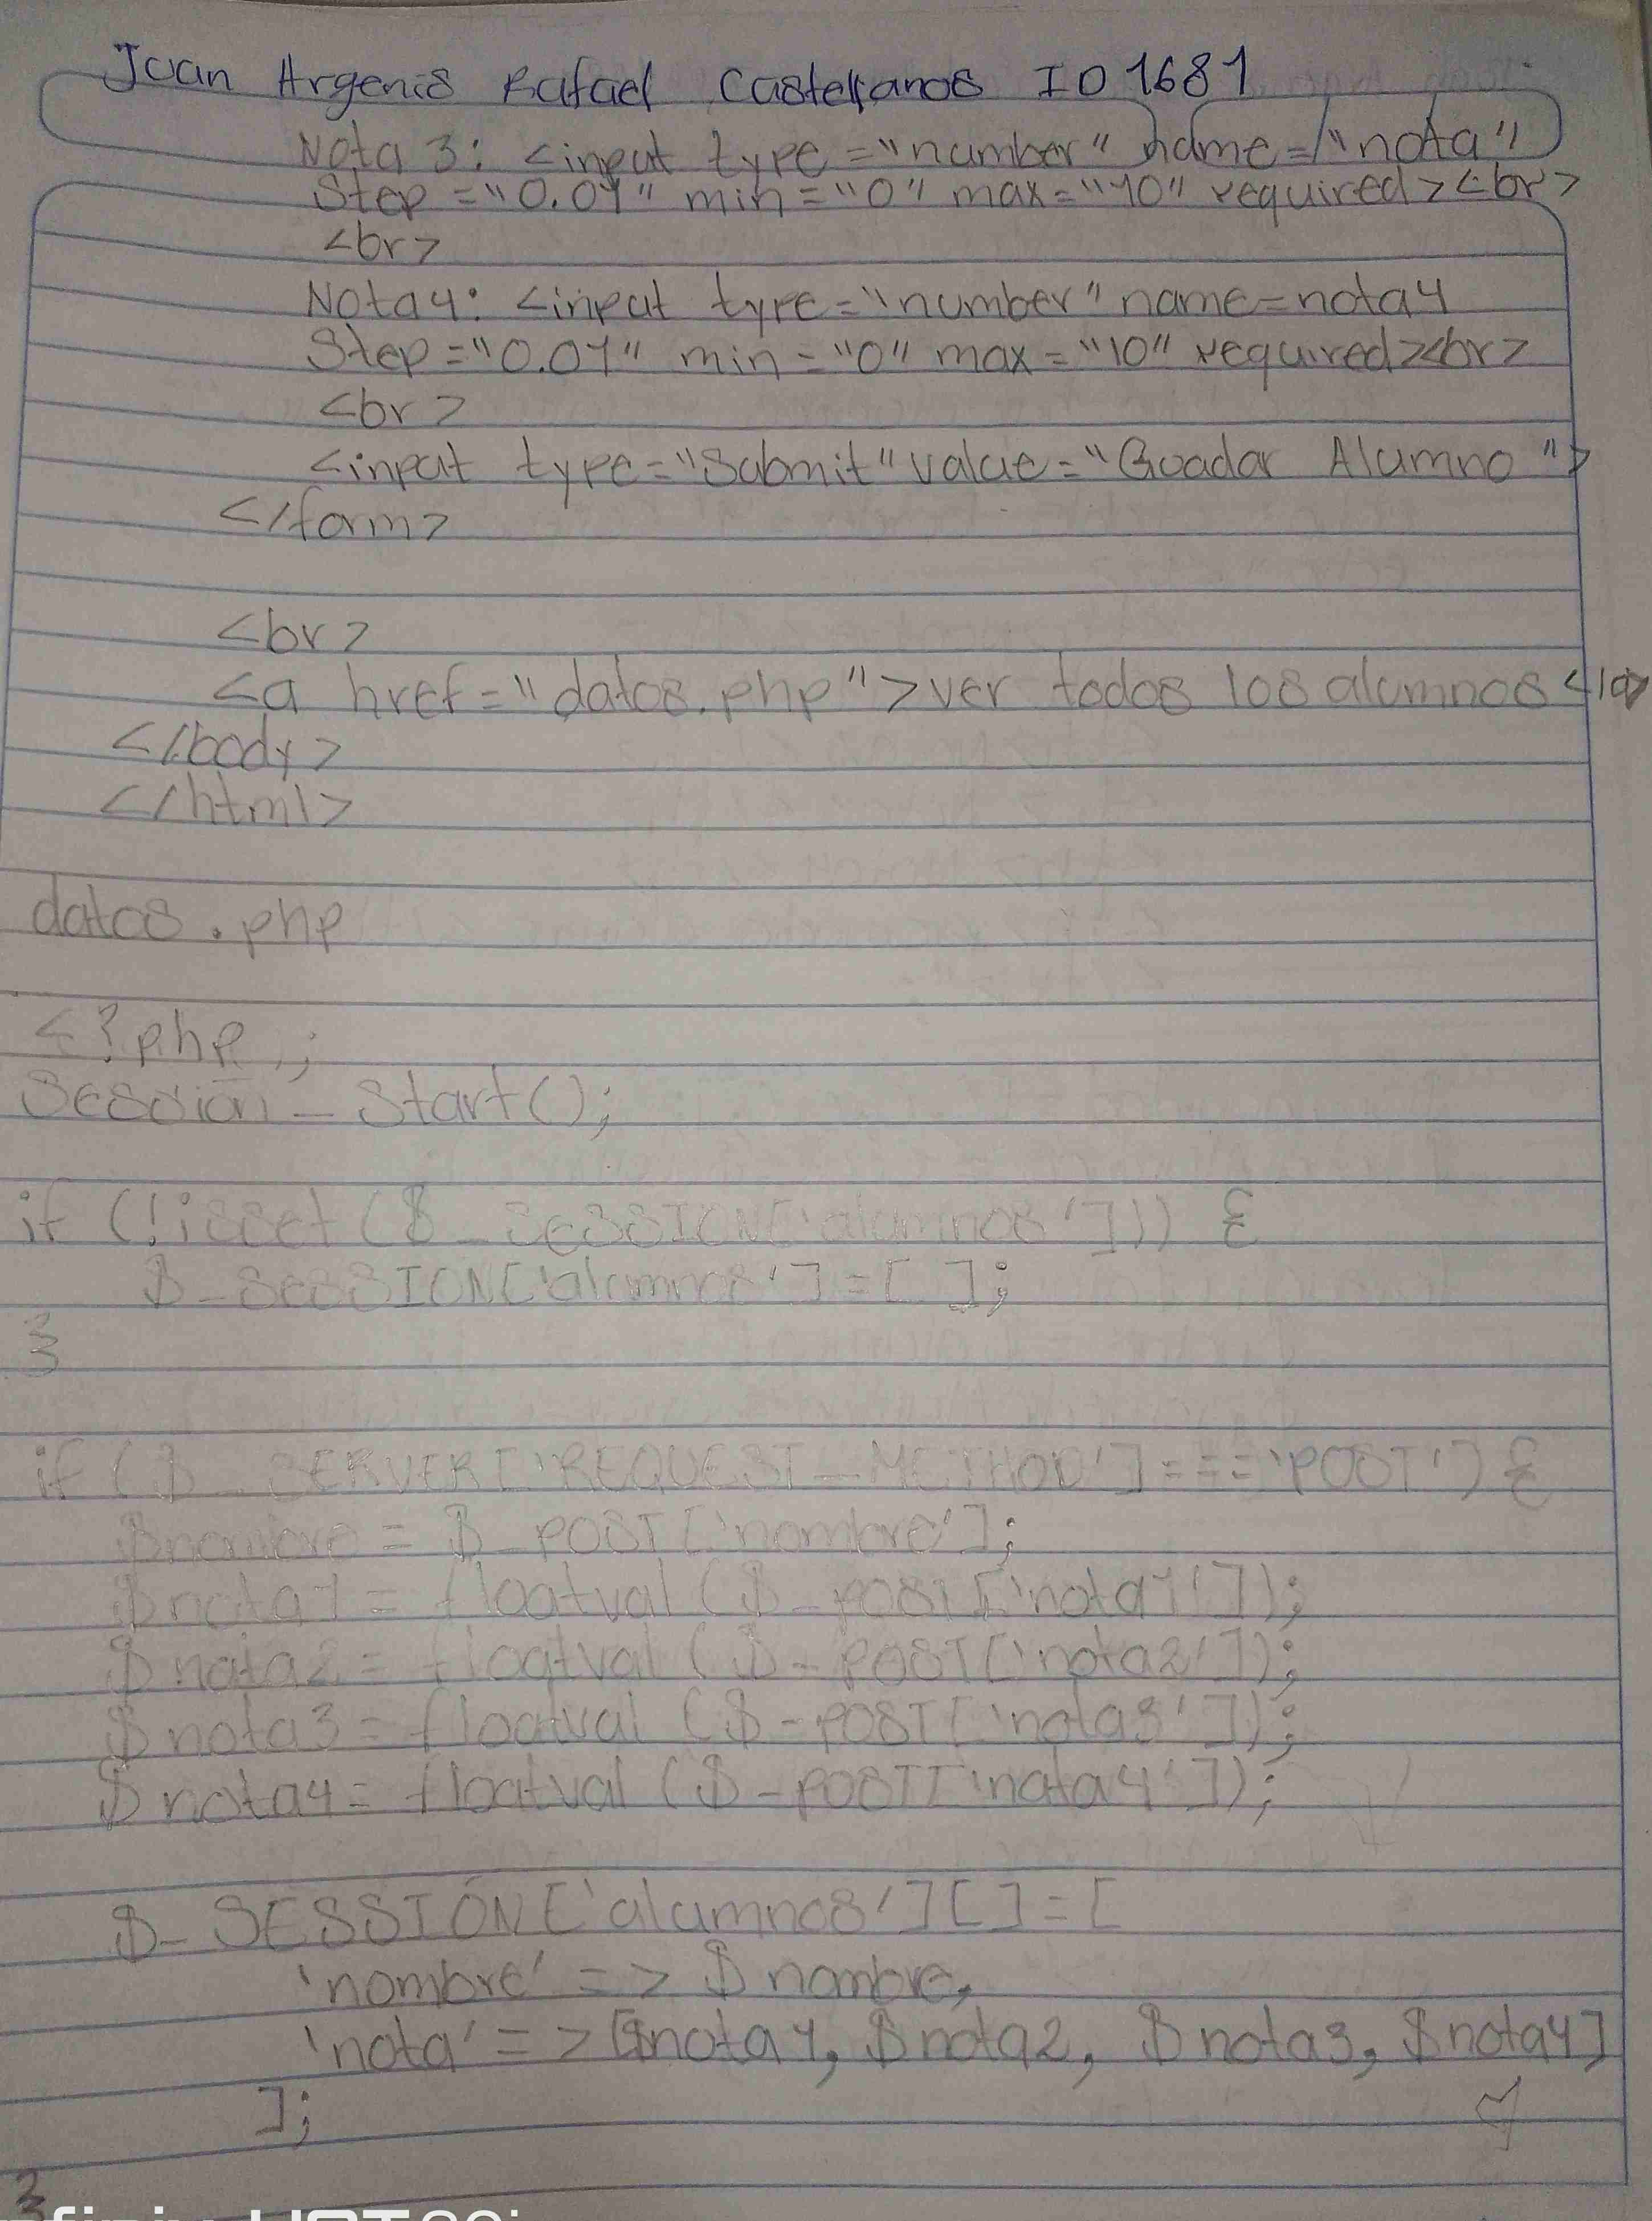 Juan Argenis Rafael Castellanos ID 1681
Nota 3: <input type="number" name="nota"
Step="0.01" min="0" max="10" required><br>
<br>
Nota4: <input type="number" name=nota4
Step="0.01" min="0" max="10" required><br>
<br>
<input type="Submit" value="Guadar Alumno">
</form>
<br>
<a href="datos.php">ver todos los alumnos</a>
</body>
</html>
datos.php
<?php ;
Session_Start();
if (!isset($_SESSION['alumnos'])) {
$_SESSION['alumnos']=[ ];
}
if ($_SERVER['REQUEST_METHOD']==='POST') {
$nombre = $_POST['nombre'];
$nota1 = floatval ($_POST['nota1']);
$nota2 = floatval ($_POST['nota2']);
$nota3 = floatval ($_POST['nota3']);
$nota4 = floatval ($_POST['nota4']);
$_SESSIÓN['alumnos'][]=[
'nombre' => $nombre,
'nota' => [$nota1, $nota2, $nota3, $nota4]
];
}